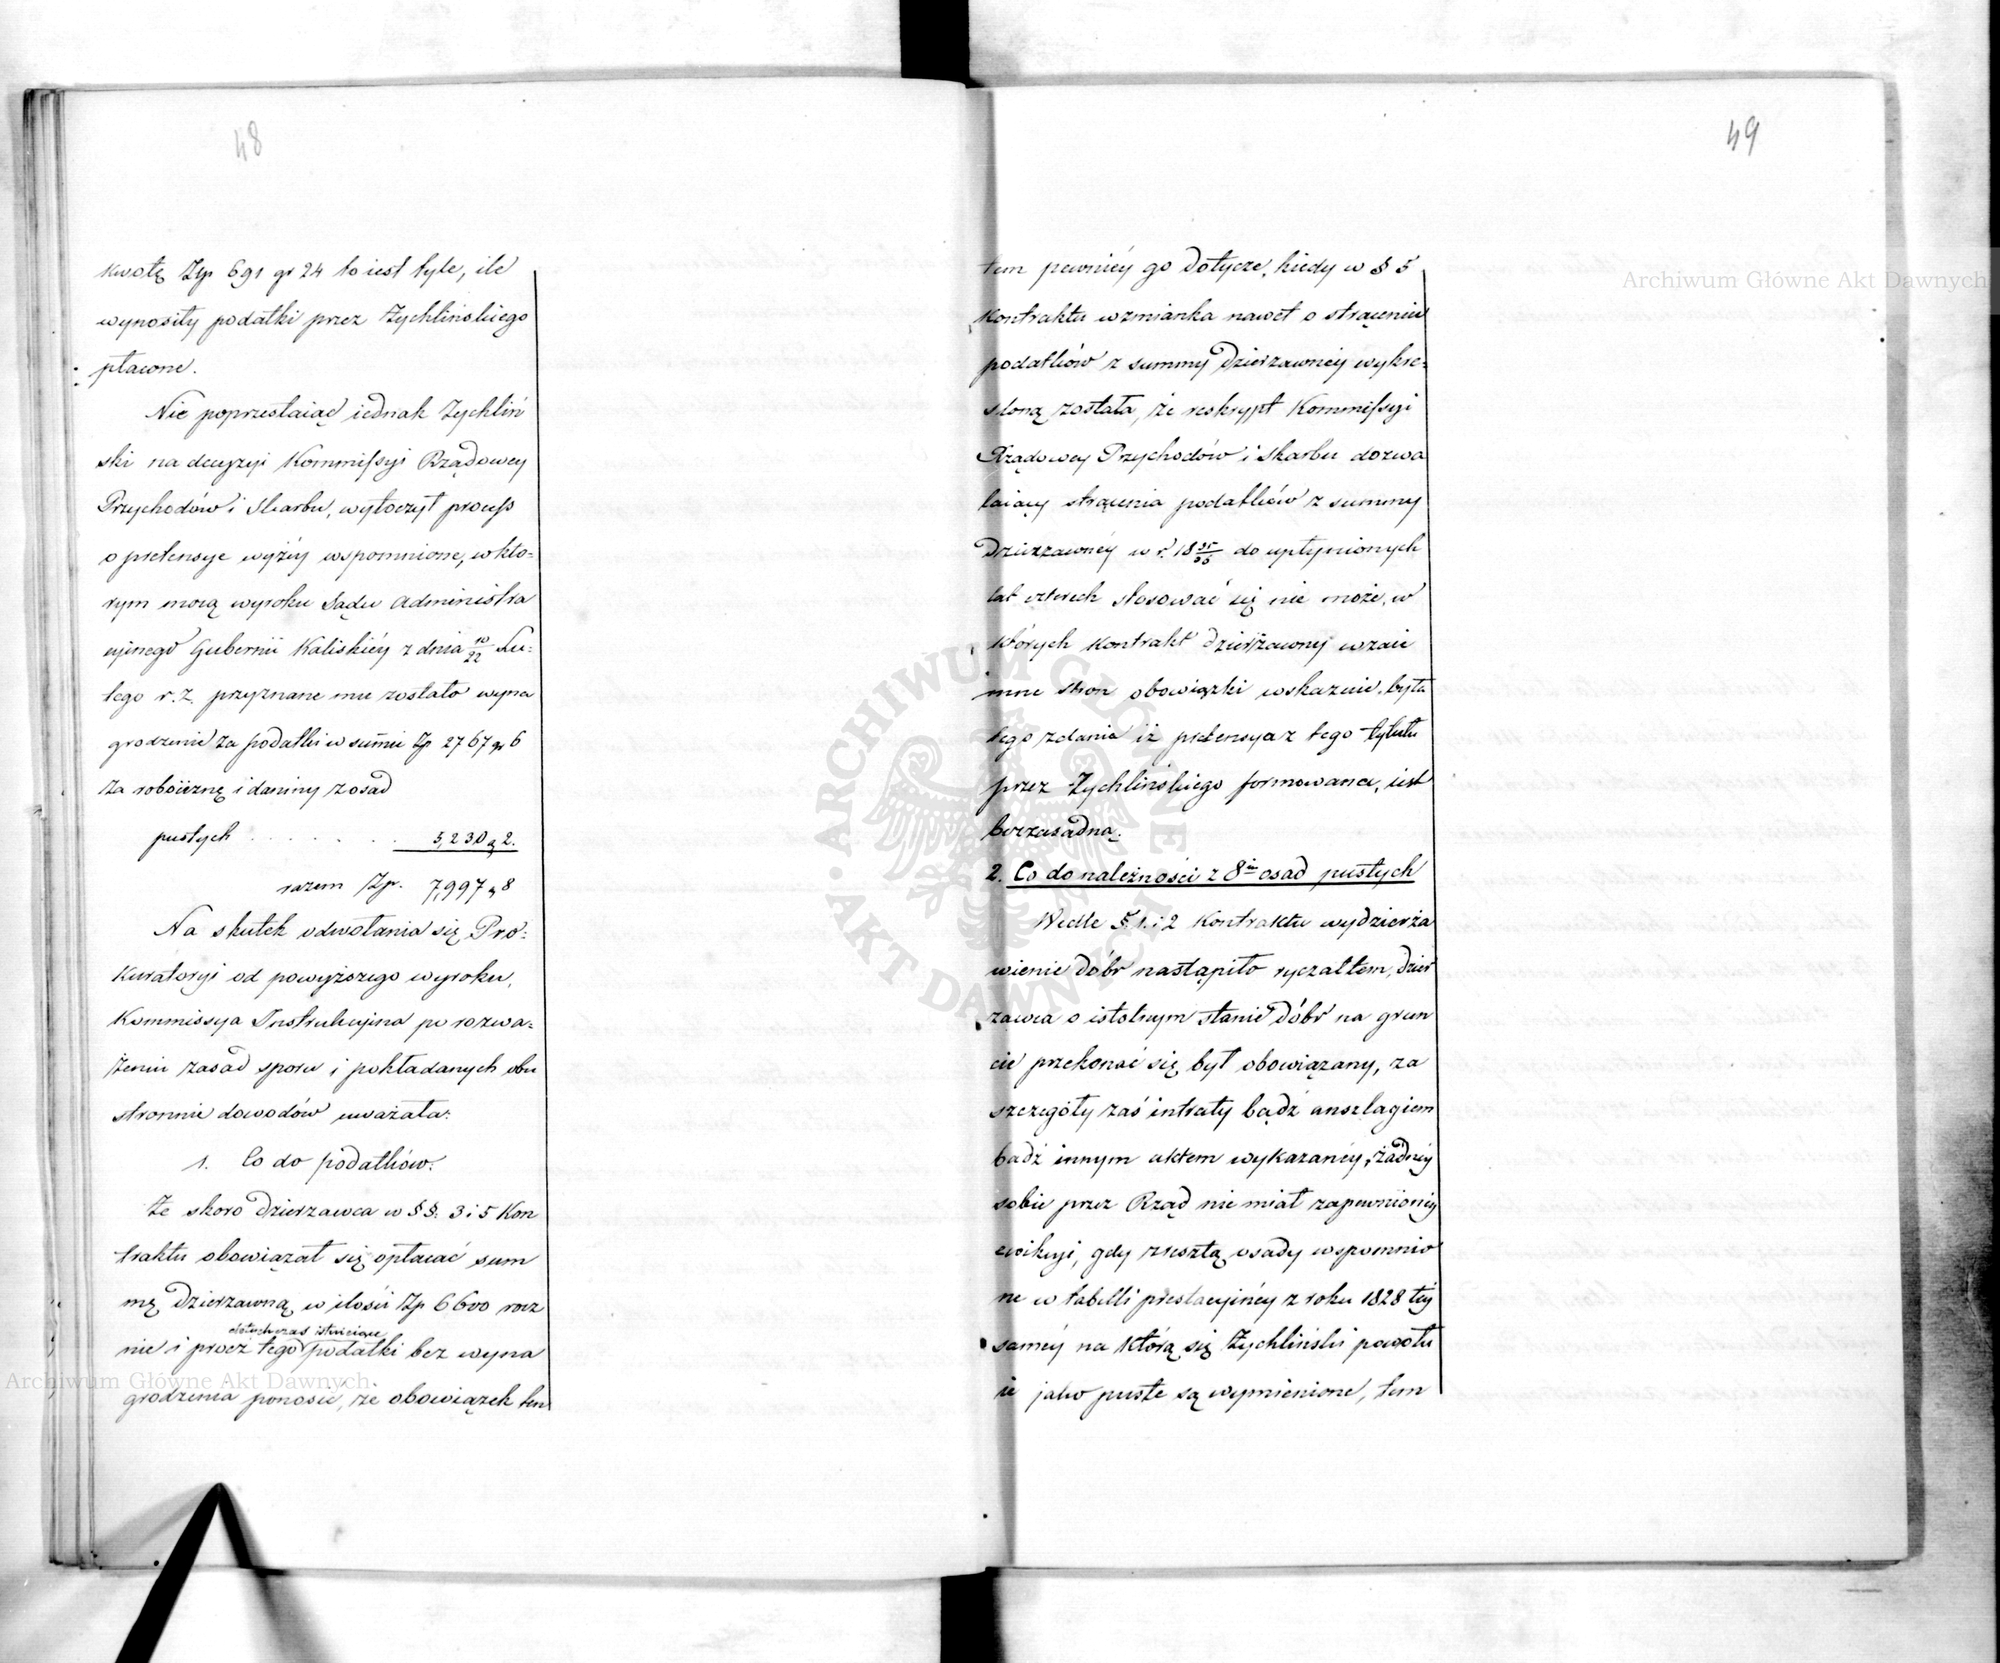 48
kwotę Złp 691 gr 24 to iest tyle, ile
wynosiły podatki przez Żychlińskiego
płacone.
Nie poprzestaiąc iednak Żychliń
ski na decyzyi Kommissyi Rządowey
Przychodów i Skarbu, wytoczył process
o pretensye wyżéy wspomnione, w któ-
rym mocą wyroku Sądu Administra
cyinego Gubernii Kaliskiéy z dnia 10/22 Lu-
tego r. z. przyznane mu zostało wyna
grodzenie za podatki w summie Zp 2767 gr 6
za robociznę i daniny z osad
pustych . . . . . . 5,230 g 2.
razem Zp. 7,997 g 8
Na skutek odwołania się Pro-
kuratoryi od powyższego wyroku,
Kommissya Instrukcyina po rozwa-
żeniu zasad sporu i pokładanych obu
stronnie dowodów uważała:
1. Co do podatków.
Że skoro dzierzawca w §§. 3 i 5 Kon
traktu obowiązał się opłacać sum
mę dzierzawną w ilości Zp 6600 rocz
dotychczas istnieiące
nie i procz tego podatki bez wyna
grodzenia ponosić, że obowiązek ten
49
tem pewniéy go dotycze, kiedy w § 5
Kontraktu wzmianka nawet o strąceniu
podatków z summy dzierzawnéy wykre-
sloną została, że reskrypt Kommissyi
Rządowey Przychodów i Skarbu dozwa
laiący strącenia podatków z summy
dzierzawnéy w r. 18 35/36 do upłynionych
lat czterech stosować się nie może, w
których kontrakt dzierżawny wzaie
mne stron obowiązki wskazuie, była
tego zdania iż pretensya z tego tytułu
przez Żychlińskiego formowana, iest
bezzasadną.
2. Co do należności z 8iu osad pustych
Wedle §. 1. i 2 Kontraktu wydzierża
wienie dóbr nastąpiło ryczałtem, dzier
żawca o istotnym stanie dóbr na grun
cie przekonać się był obowiązany, za
szczegóły zaś intraty bądź anszlagiem
bądź innym aktem wykazanéy, żadnéy
sobie przez Rząd nie miał zapewnionéy
ewikcyi, gdy zresztą osady wspomnio
ne w tabelli prestacyinéy z roku 1828 téy
saméy na którą się Żychliński powołu
ie jako puste są wymienione, tem
Archiwum Główne Akt Dawnych
Archiwum Główne Akt Dawnych
ARCHIWUM GŁÓWNE AKT DAWNYCH